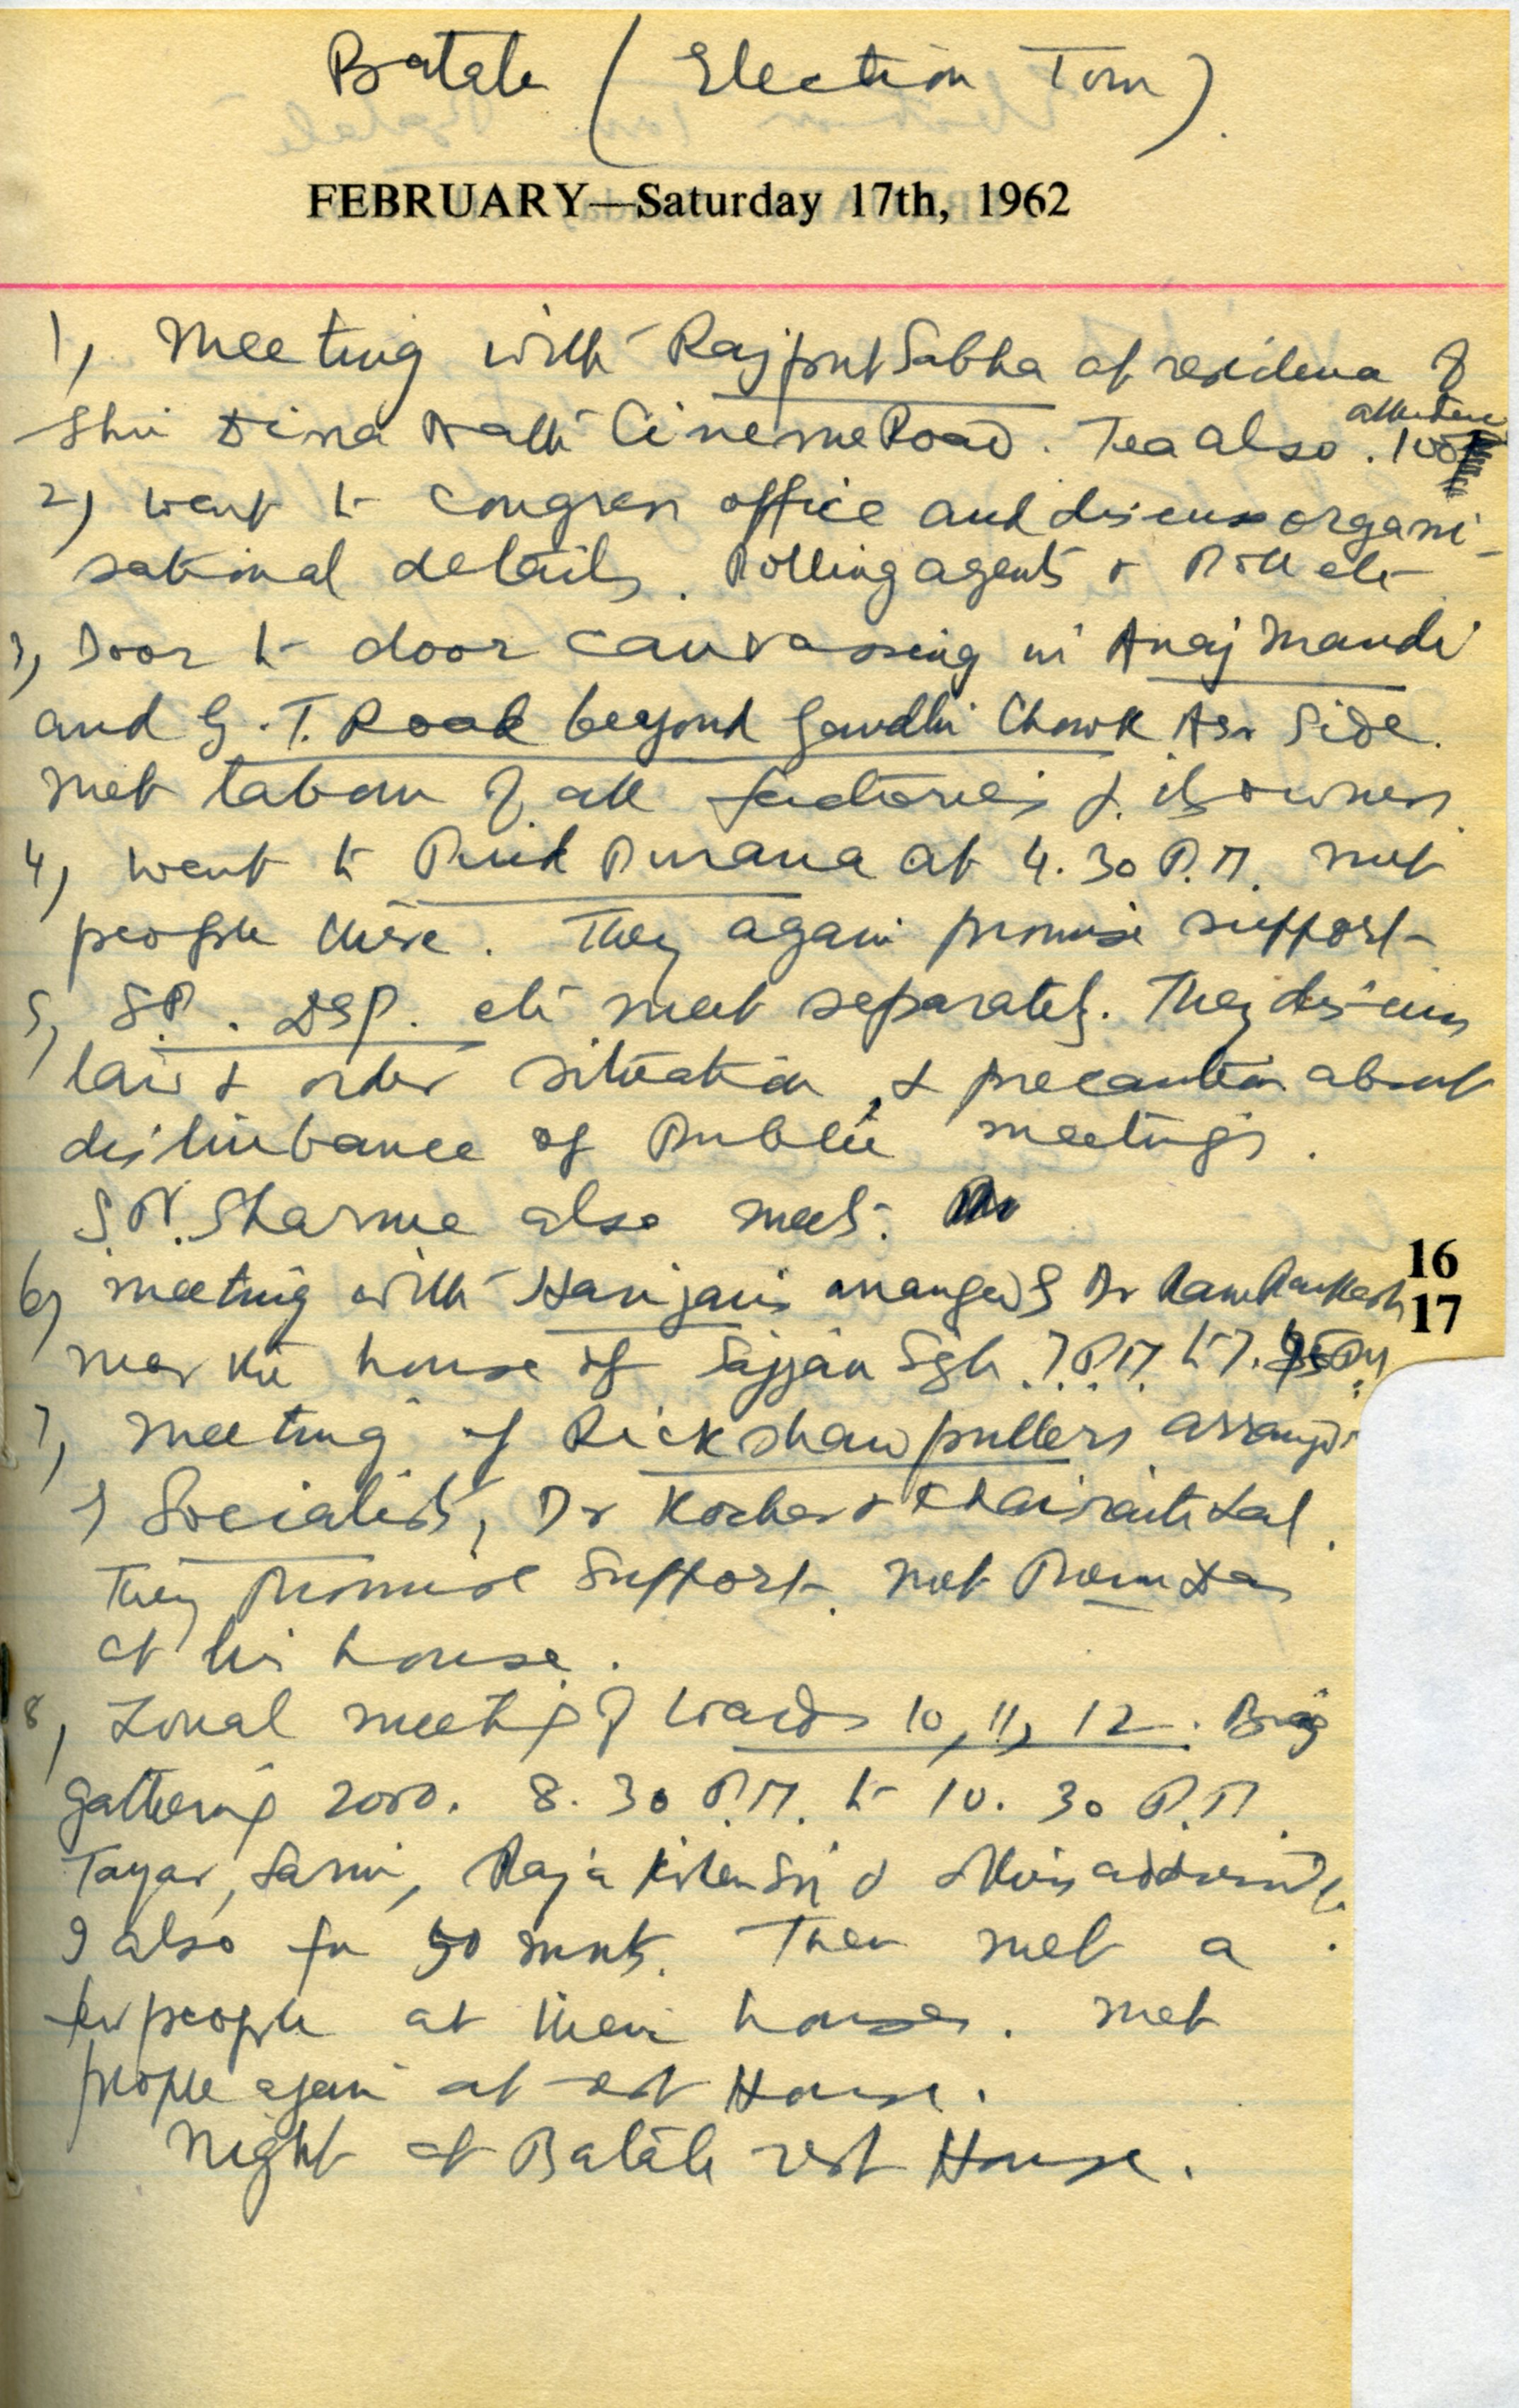 Batala (Election Tour).
FEBRUARY—Saturday 17th, 1962
1, Meeting with Rajput Sabha at residence of
Shri Dina Nath Cinema Road. Tea also. attendance 100
2) Went to Congress office and discuss organi-
sational details. Polling agents &
3, Door to door canvassing in Anaj Mandi
and G.T. Road beyond Gandhi Chowk Asr Side.
Met labour of all factories & its owners.
4, Went to Pind Purana at 4.30 P.M. Met
people there. They again promise support
5, S.P. DSP. etc meet separately. They discuss
law & order situation, & precaution about
disturbance of Public meetings.
S.N. Sharma also meets.
6, Meeting with Harijans arranged by Dr Ram Parkash
near the house of Sajjan Sgh. 7.P.M. to 7.
7, Meeting of Rickshaw pullers arranged
by Socialists, Dr Kocher & Khairaiti Lal.
They Promise Support. Met Prem
at his house.
8, Zonal meeting of Wards 10, 11, 12. Big
gathering 2000. 8.30 P.M. to 10.30 P.M.
Tayar, Raja & addressed.
I also for 50 mnts. Then met a
few people at their houses. Met
people again at rest House.
Night at Batala rest House.
16
17